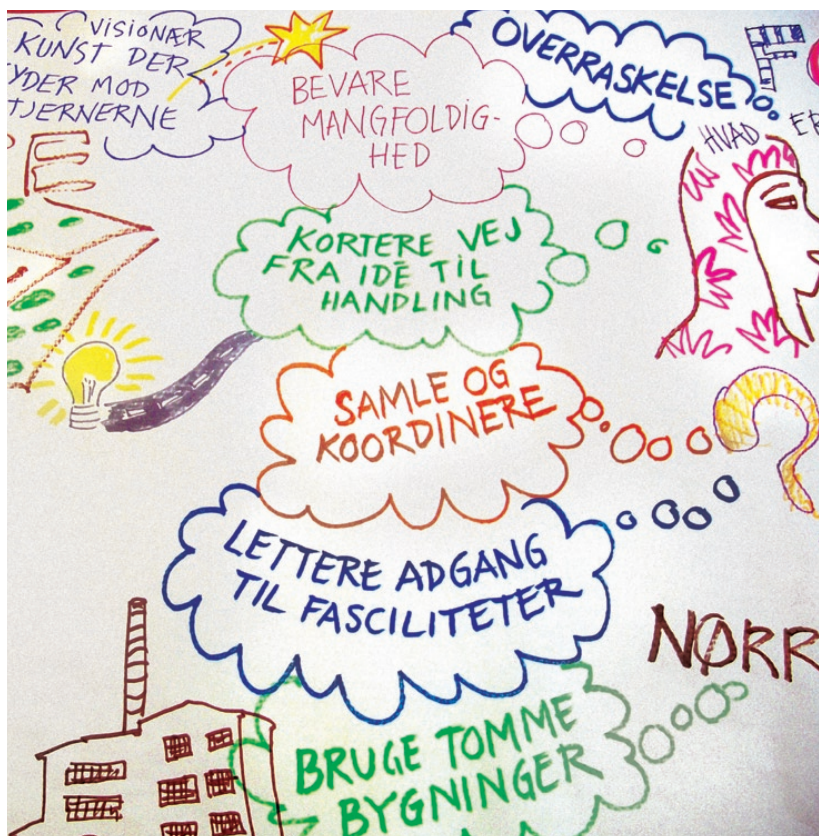 VISIONÆR
KUNST DER
YDER MOD
TJERNERNE
BEVARE
MANGFOLDIG-
HED
OVERRASKELSE
HVAD ER
KORTERE VEJ
FRA IDÉ TIL
HANDLING
SAMLE OG
KOORDINERE
LETTERE ADGANG
TIL FASCILITETER
NØRR
BRUGE TOMME
BYGNINGER